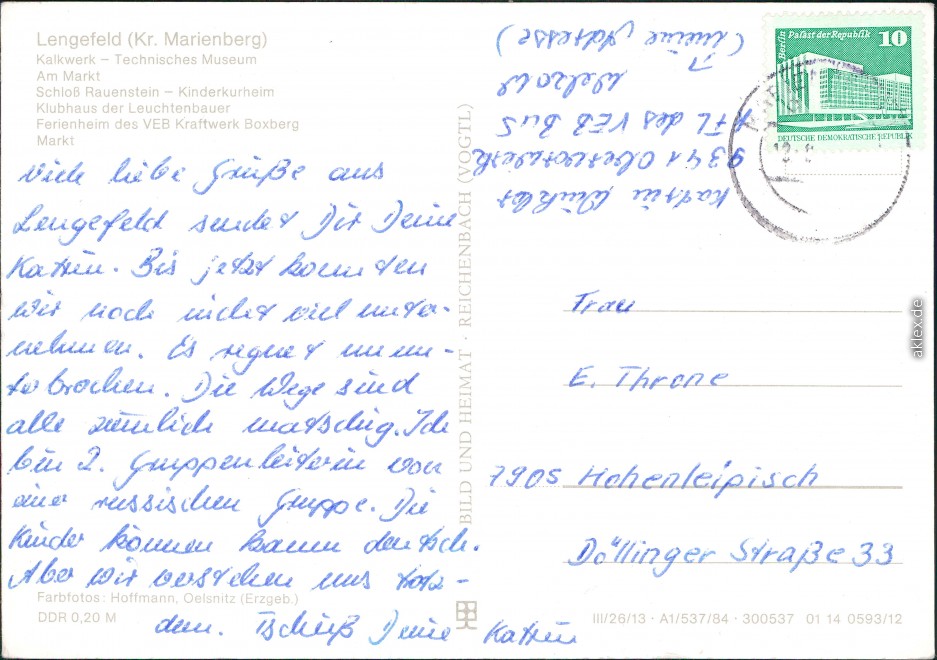 Lengefeld (Kr. Marienberg)
Kalkwerk – Technisches Museum
Am Markt
Schloß Rauenstein – Kinderkurheim
Klubhaus der Leuchtenbauer
Ferienheim des VEB Kraftwerk Boxberg
Markt
Viele liebe Grüße aus
Lengefeld sendet Dir Deine
Katrin. Bis jetzt konnten
wir noch nicht viel unter-
nehmen. Es regnet unun-
terbrochen. Die Wege sind
alle ziemlich matschig. Ich
bin 2. Gruppenleiterin von
einer russischen Gruppe. Die
Kinder können kaum deutsch.
Aber wir verstehen uns trotz-
dem. Tschüß Deine Katrin
Farbfotos: Hoffmann, Oelsnitz (Erzgeb.)
DDR 0,20 M
BILD UND HEIMAT · REICHENBACH (VOGTL)
Katrin
9341
FL des VEB BuS
Welzow
(meine Adresse)
Berlin Palast der Republik 10
DEUTSCHE DEMOKRATISCHE REPUBLIK
Frau
E. Throne
7905 Hohenleipisch
Döllinger Straße 33
III/26/13 · A1/537/84 · 300537 01 14 0593/12
aklex.de